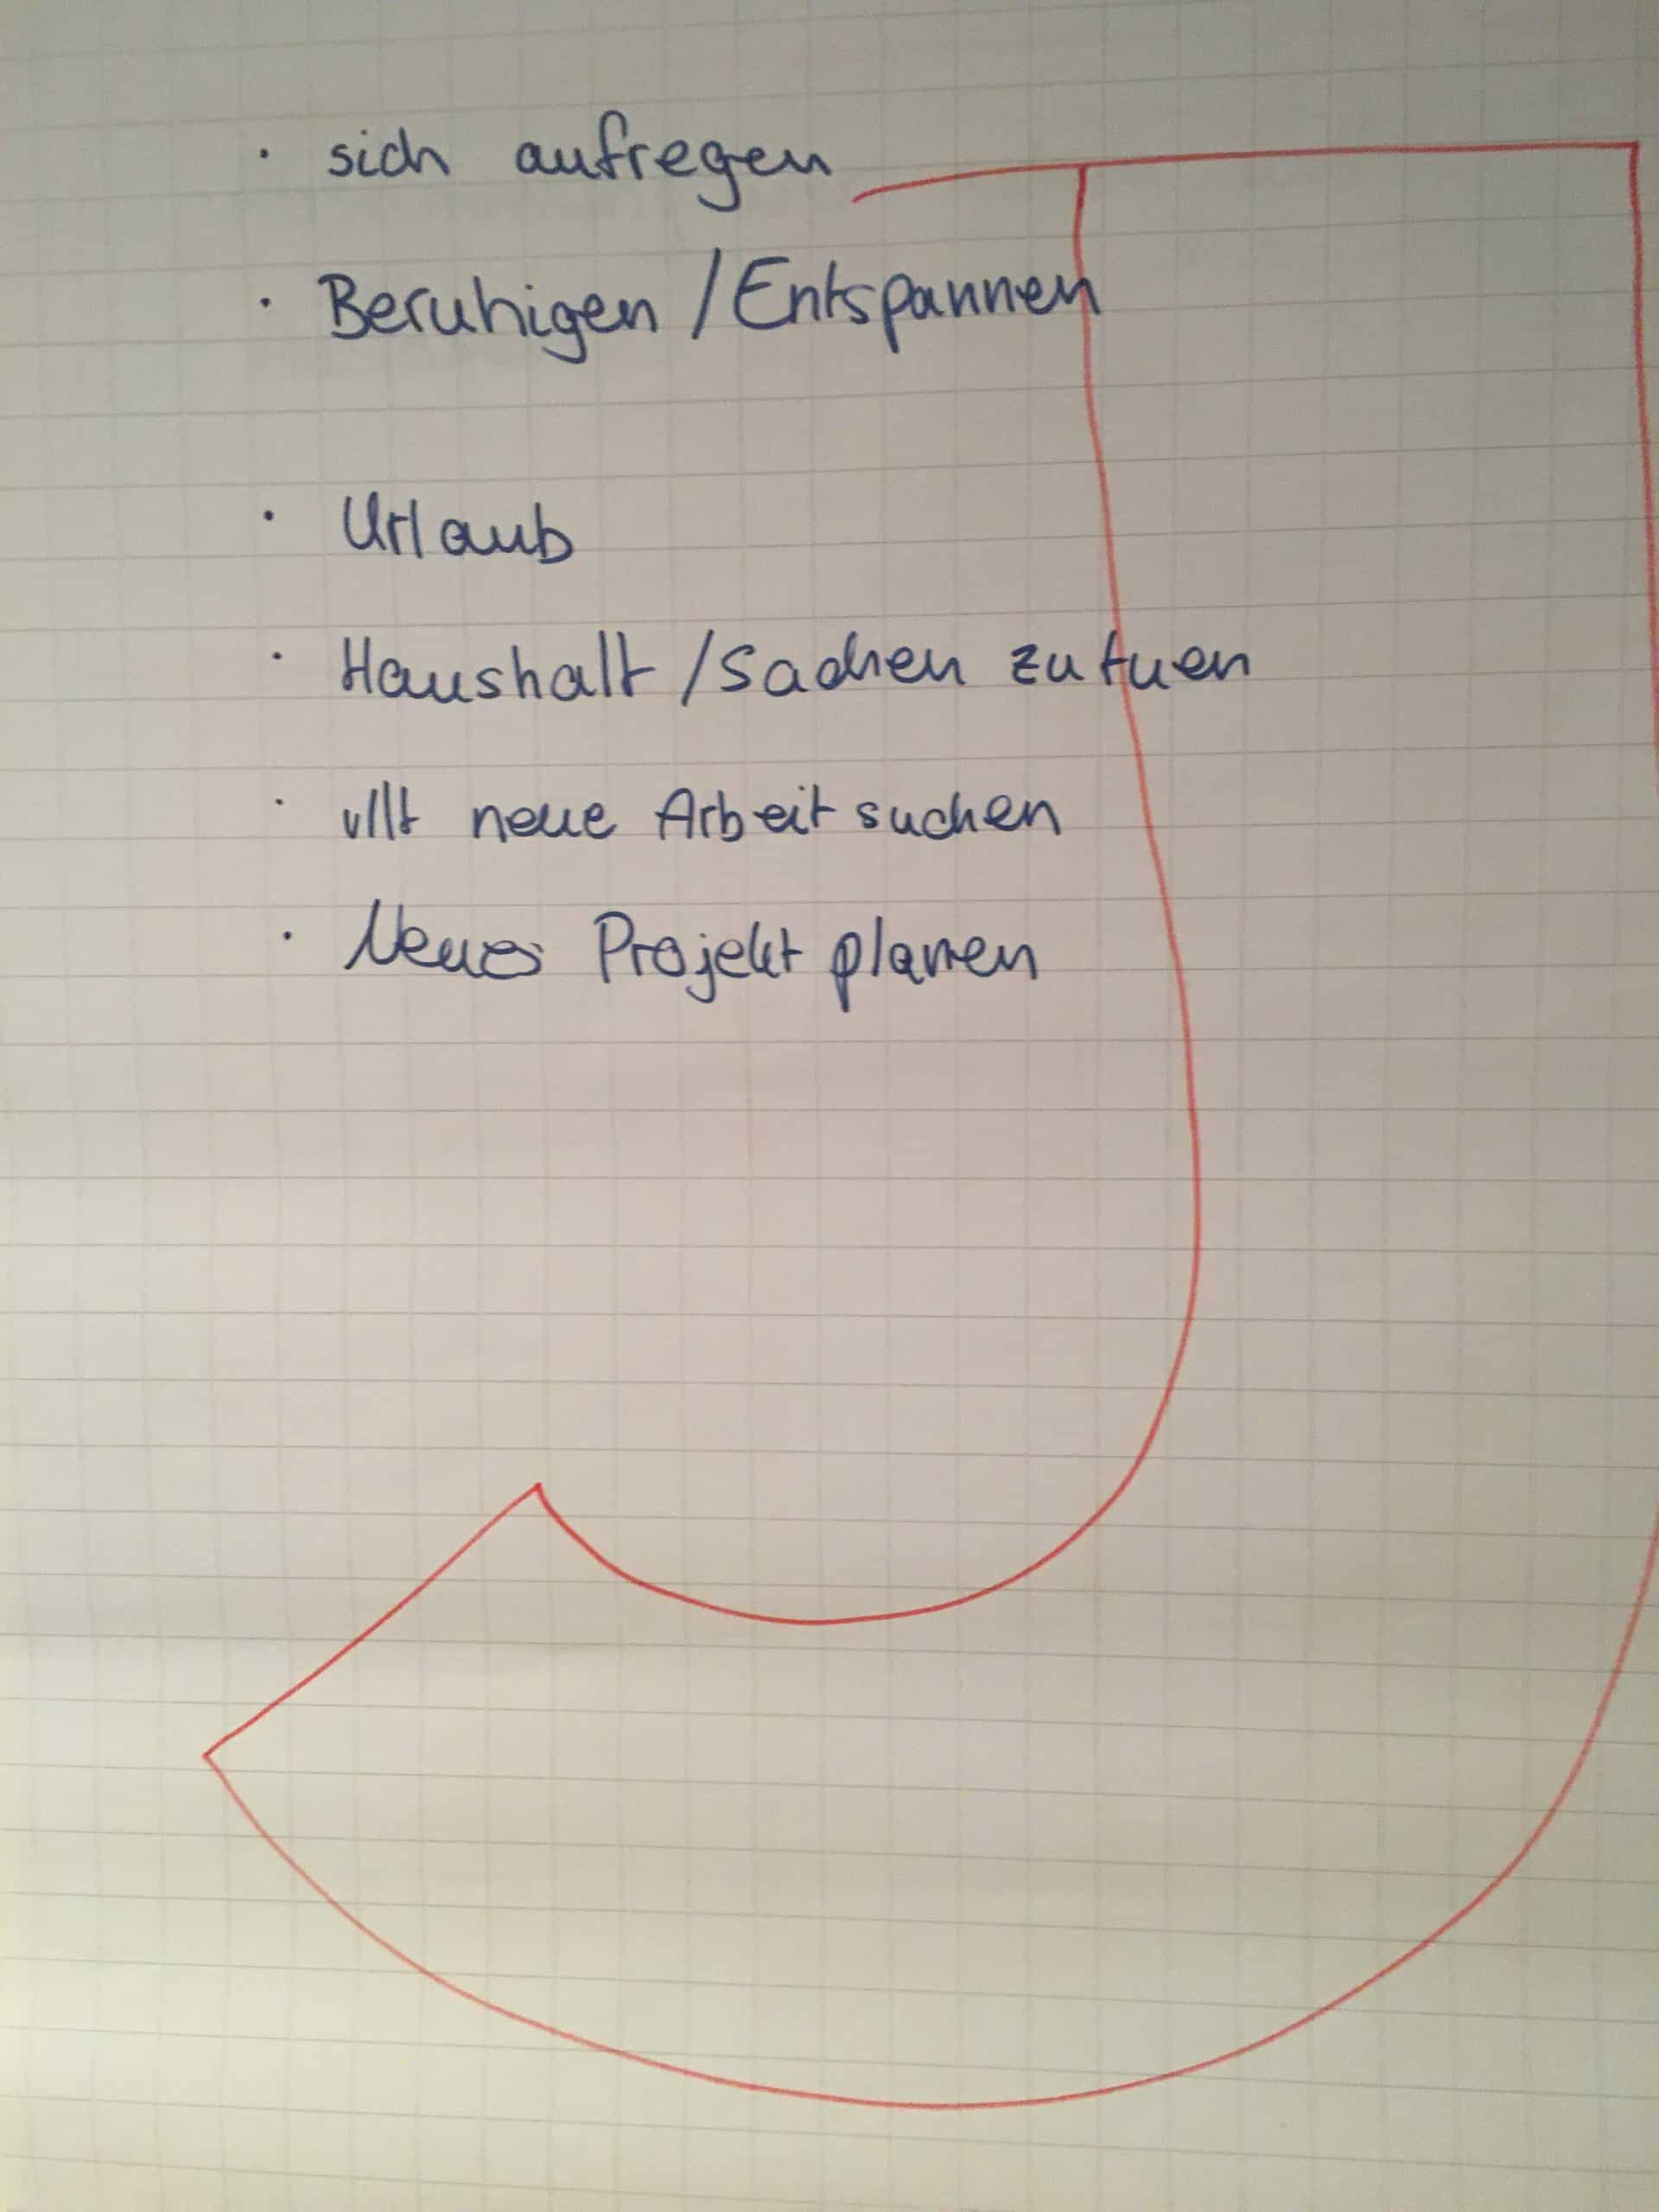 · sich aufregen
· Beruhigen / Entspannen
· Urlaub
· Haushalt / Sachen zu tuen
· vllt neue Arbeit suchen
· Neues Projekt planen